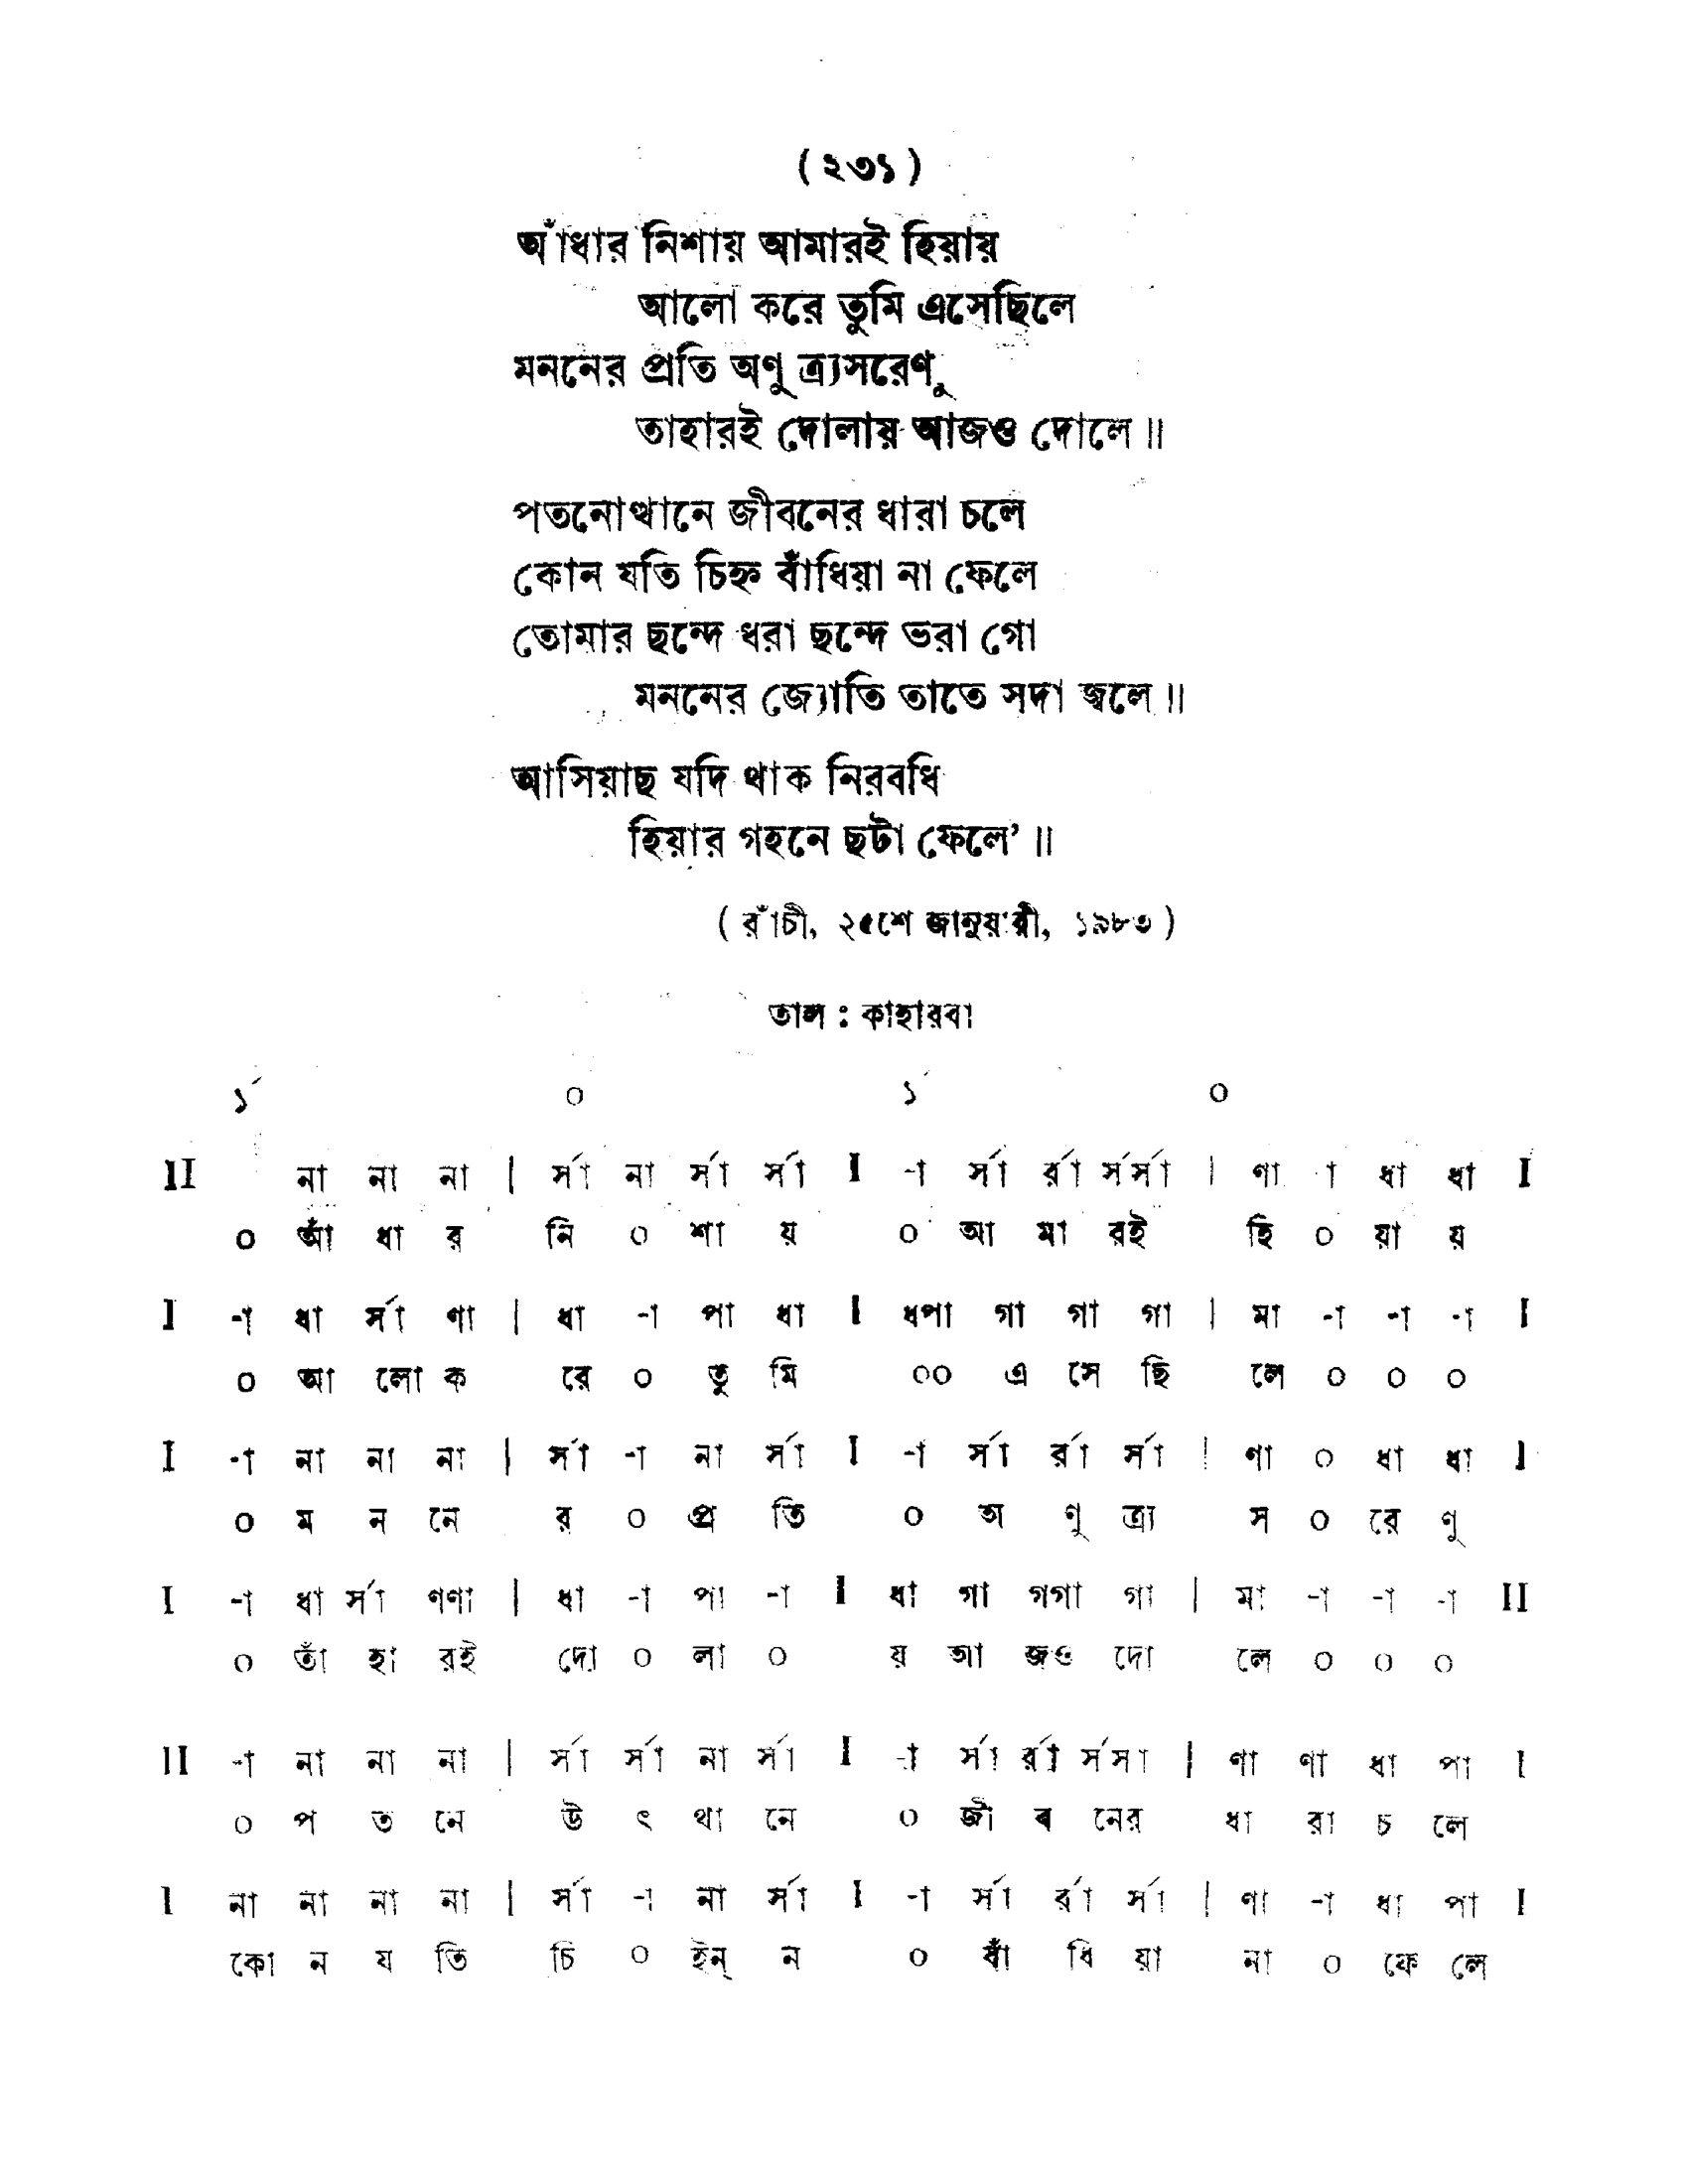 ( ২৩১ )
আঁধার নিশায় আমারই হিয়ায়
আলো করে তুমি এসেছিলে
মননের প্রতি অণু ত্র্যসরেণু
তাহারই দোলায় আজও দোলে ॥
পতনোত্থানে জীবনের ধারা চলে
কোন যতি চিহ্ন বাঁধিয়া না ফেলে
তোমার ছন্দে ধরা ছন্দে ভরা গো
মননের জ্যোতি তাতে সদা জ্বলে ॥
আসিয়াছ যদি থাক নিরবধি
হিয়ার গহনে ছটা ফেলে’ ॥
( রাঁচী, ২৫শে জানুয়ারী, ১৯৮৩ )
তাল : কাহারবা
১´ ০ ১´ ০
II না না না | র্সা না র্সা র্সা I -া র্সা র্রা র্সর্সা | ণা -া ধা ধা I
০ আঁ ধা র নি ০ শা য় ০ আ মা রই হি ০ য়া য়
I -া ধা র্সা ণা | ধা -া পা ধা I ধপা গা গা গা | মা -া -া -া I
০ আ লো ক রে ০ তু মি ০০ এ সে ছি লে ০ ০ ০
I -া না না না | র্সা -া না র্সা I -া র্সা র্রা র্সা | ণা ০ ধা ধা I
০ ম ন নে র ০ প্র তি ০ অ ণু ত্র্য স ০ রে ণু
I -া ধা র্সা ণণা | ধা -া পা -া I ধা গা গগা গা | মা -া -া -া II
০ তাঁ হা রই দো ০ লা ০ য় আ জও দো লে ০ ০ ০
II -া না না না | র্সা র্সা না র্সা I -া র্সা র্রা র্সসা | ণা ণা ধা পা I
০ প ত নে উ ৎ থা নে ০ জী ব নের ধা রা চ লে
I না না না না | র্সা -া না র্সা I -া র্সা র্রা র্সা | ণা -া ধা পা I
কো ন য তি চি ০ ইন্ ন ০ বাঁ ধি য়া না ০ ফে লে